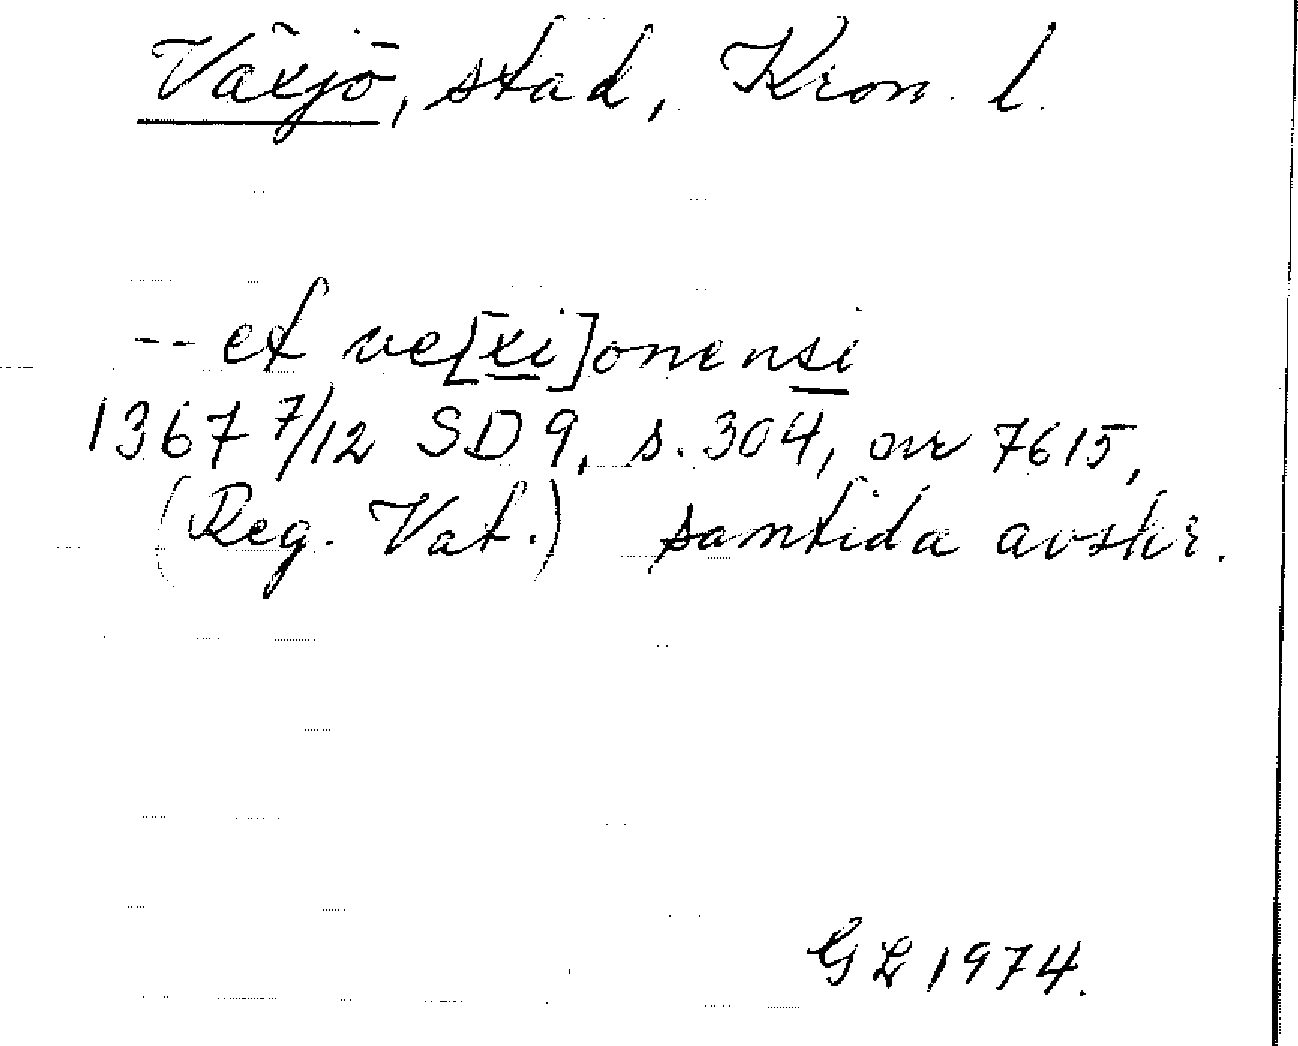 Växjö, stad, Kron. l.
-- et ve[xi]onensi
1367 7/12 SD 9, s. 304, nr 7615,
(Reg. Vat.) samtida avskr.
GL 1974.